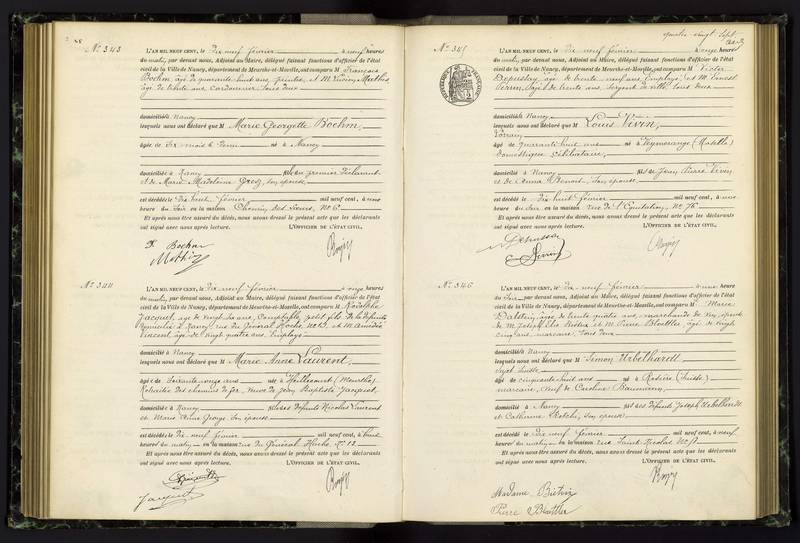 N° 343
L'AN MIL NEUF CENT, le Dix neuf février à neuf heures
du matin, par devant nous, Adjoint au Maire, délégué faisant fonctions d'officier de l'état
civil de la Ville de Nancy, département de Meurthe-et-Moselle, ont comparu M François
Boehm, âgé de quarante huit ans, peintre, et M
âgé de trente ans cordonnier, tous deux
domiciliés à Nancy
lesquels nous ont déclaré que M Marie Georgette Boehm,
âgée de Dix mois & demi née à Nancy
domiciliée à Nancy fille du premier déclarant
et de Marie Madeleine Gross, son épouse
est décédée le Dix huit février mil neuf cent, à une
heure du Soir en la maison Chemin des N° 6.
Et après nous être assuré du décès, nous avons dressé le présent acte que les déclarants
ont signé avec nous après lecture. L'OFFICIER DE L'ÉTAT CIVIL.
F. Boehm
N° 344
L'AN MIL NEUF CENT, le Dix neuf février à onze heures
du matin, par devant nous, Adjoint au Maire, délégué faisant fonctions d'officier de l'état
civil de la Ville de Nancy, département de Meurthe-et-Moselle, ont comparu M
Jacquot, âgé de vingt six ans, Comptable, petit fils de la défunte
domicilié à Nancy rue du Général Hoche, N° 13, et M Amédée
Vincent, âgé de vingt quatre ans, Employé
domicilié à Nancy
lesquels nous ont déclaré que M Marie Anne Laurent,
âgée de Soixante onze ans née à (Meurthe)
Retraitée des chemins de fer, veuve de Jean Baptiste Jacquot,
domiciliée à Nancy fille des défunts Nicolas Laurent
et Marie Anne George, son épouse
est décédée le Dix neuf février mil neuf cent, à huit
heures du matin en la maison rue du Général Hoche, N° 13
Et après nous être assuré du décès, nous avons dressé le présent acte que les déclarants
ont signé avec nous après lecture. L'OFFICIER DE L'ÉTAT CIVIL.
Jacquot
quatre vingt sept
N° 345
L'AN MIL NEUF CENT, le Dix neuf février à onze heures
du matin, par devant nous, Adjoint au Maire, délégué faisant fonctions d'officier de l'état
civil de la Ville de Nancy, département de Meurthe-et-Moselle, ont comparu M Victor
âgé de trente neuf ans, Employé, et M Ernest
Perrin, âgé de trente ans, Sergent de ville, tous deux
domiciliés à Nancy
lesquels nous ont déclaré que M Louis Vivin,
âgé de quarante huit ans né à (Moselle)
Domestique, Célibataire,
domicilié à Nancy fils de Jean Pierre Vivin
et de Anna Benoit, son épouse
est décédé le Dix huit février mil neuf cent, à une
heure du Soir en la maison rue de l'Equitation, N° 78
Et après nous être assuré du décès, nous avons dressé le présent acte que les déclarants
ont signé avec nous après lecture. L'OFFICIER DE L'ÉTAT CIVIL.
E. Perrin
N° 346
L'AN MIL NEUF CENT, le Dix neuf février à une heure
du Soir, par devant nous, Adjoint au Maire, délégué faisant fonctions d'officier de l'état
civil de la Ville de Nancy, département de Meurthe-et-Moselle, ont comparu M Marie
âgée de trente quatre ans, marchande de vin, épouse
de M. Joseph et M. Pierre Blaettler, âgé de vingt
cinq ans, marcaire, tous deux
domiciliés à Nancy
lesquels nous ont déclaré que M Simon
Sujet Suisse,
âgé de cinquante huit ans né à (Suisse)
marcaire, veuf de Caroline Baumann,
domicilié à Nancy fils des défunts Joseph
et Catherine son épouse
est décédé le Dix neuf février mil neuf cent, à neuf
heures du matin en la maison rue Saint Nicolas N° 17
Et après nous être assuré du décès, nous avons dressé le présent acte que les déclarants
ont signé avec nous après lecture. L'OFFICIER DE L'ÉTAT CIVIL.
Madame
Pierre Blaettler